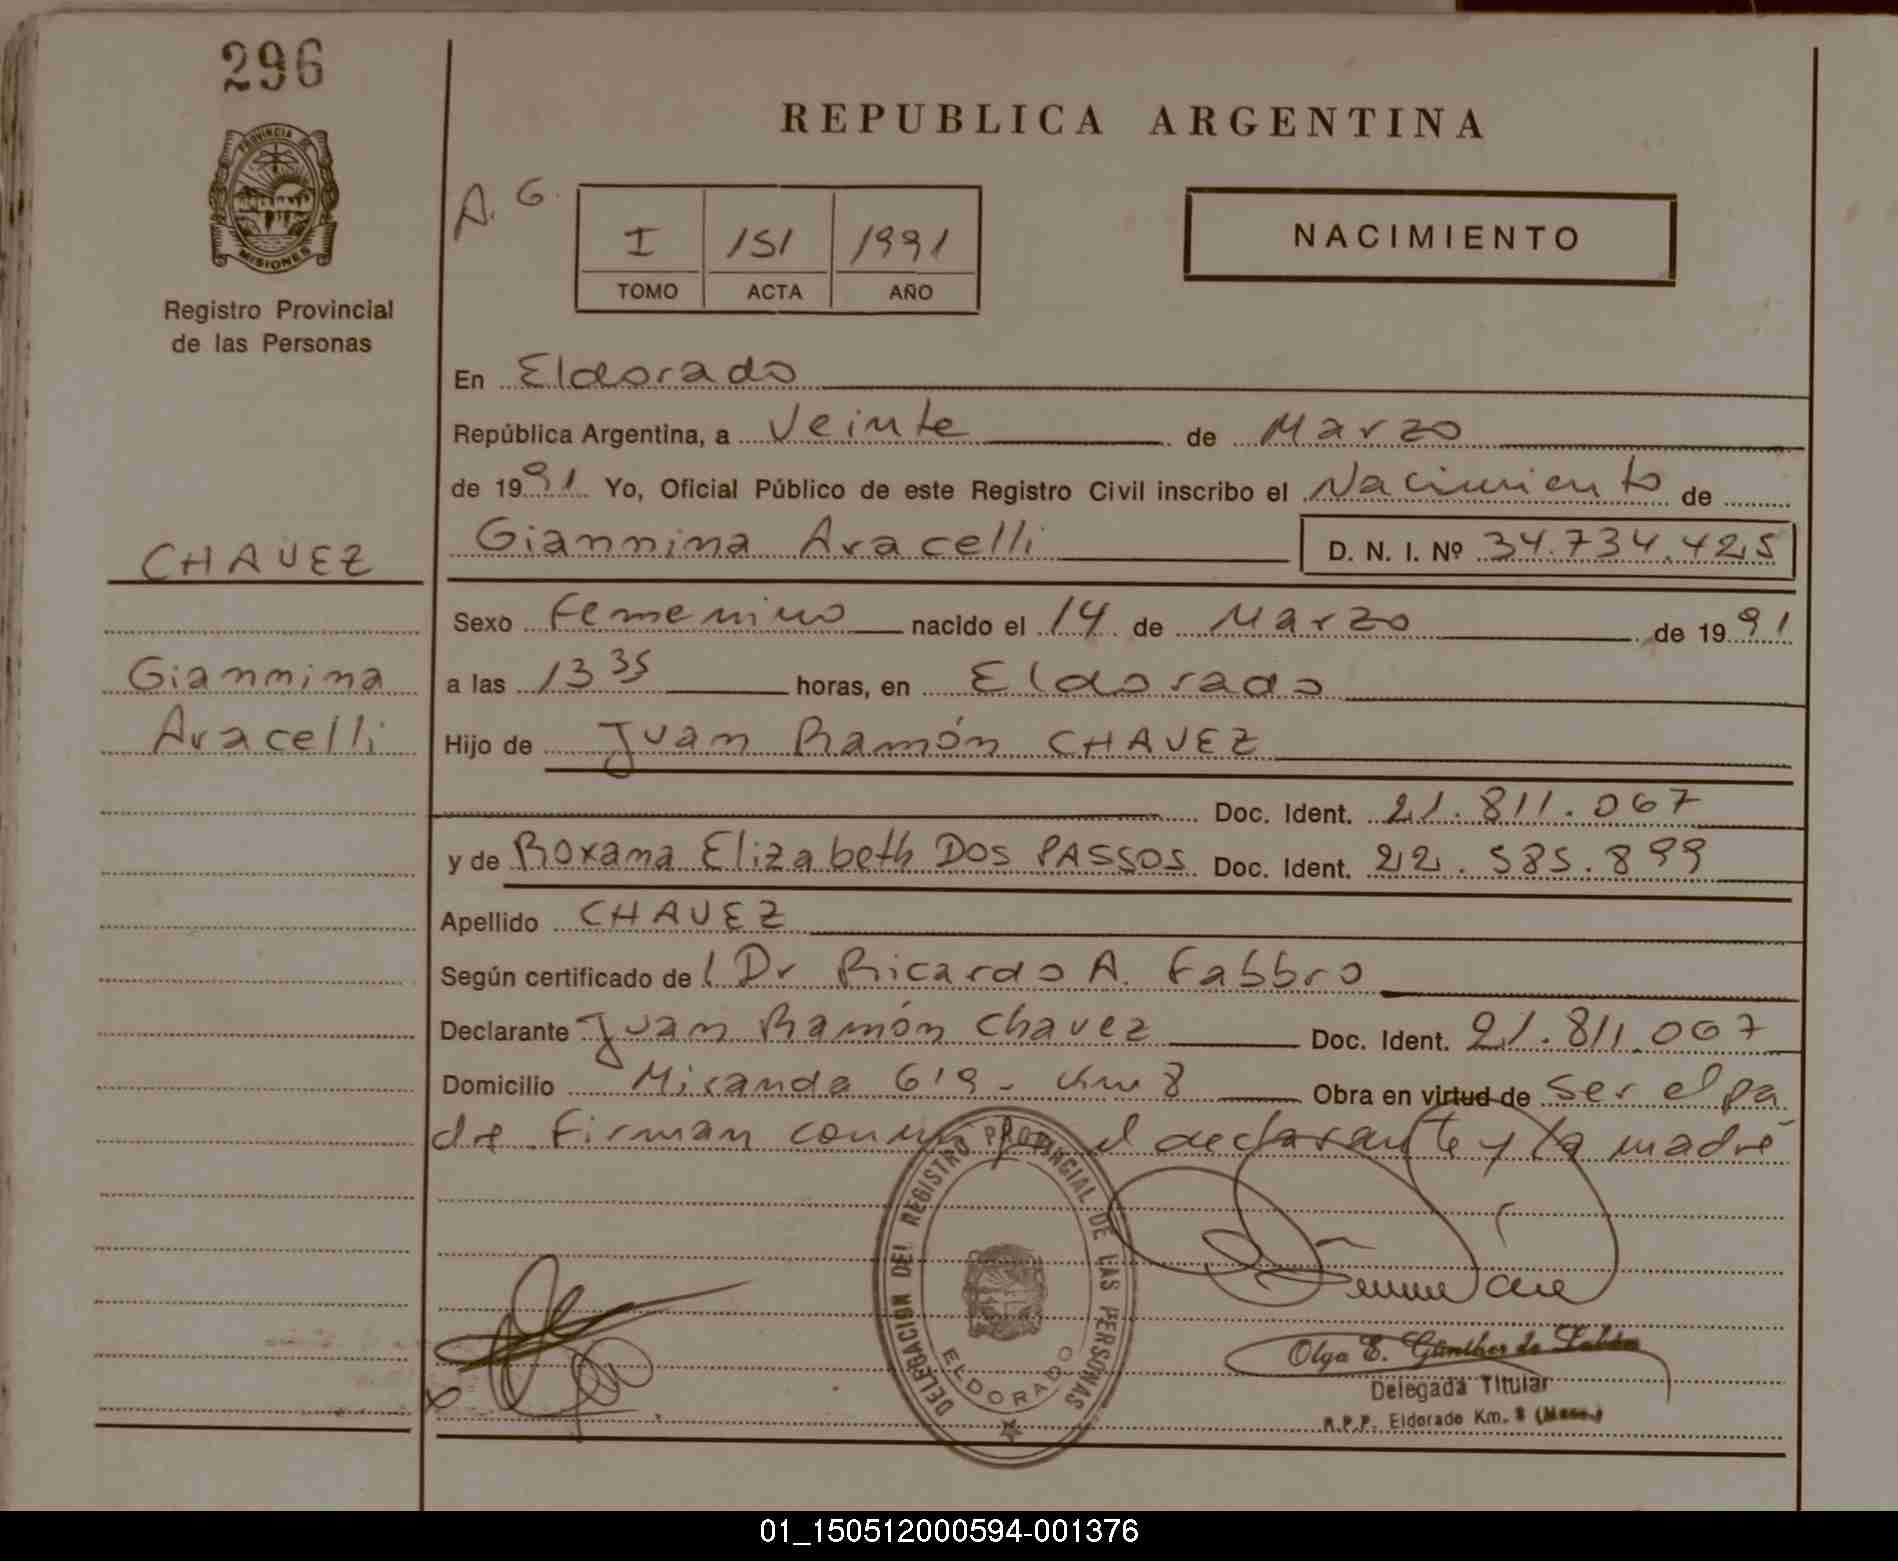 296
PROVINCIA DE
MISIONES
Registro Provincial
de las Personas
REPUBLICA ARGENTINA
A. G.
I 151 1991
TOMO ACTA AÑO
NACIMIENTO
En Eldorado
República Argentina, a Veinte de Marzo
de 1991 Yo, Oficial Público de este Registro Civil inscribo el Nacimiento de
CHAVEZ
Giannina Aracelli D. N. I. Nº 34.734.425
Sexo Femenino nacido el 14 de Marzo de 1991
Giannina
a las 13 35 horas, en Eldorado
Aracelli
Hijo de Juan Ramón CHAVEZ
Doc. Ident. 21.811.067
y de Roxana Elizabeth DOS PASSOS Doc. Ident. 22.585.899
Apellido CHAVEZ
Según certificado del Dr Ricardo A. Fabbro
Declarante Juan Ramón Chavez Doc. Ident. 21.811.067
Domicilio Miranda 619 - Km 8 Obra en virtud de ser el pa
dre Firman conmigo el declarante y la madre
DELEGACION DEL REGISTRO PROVINCIAL DE LAS PERSONAS
ELDORADO
Olga E. Günther de
Delegada Titular
R.P.P. Eldorado Km. 8 (Mnes.)
01_150512000594-001376